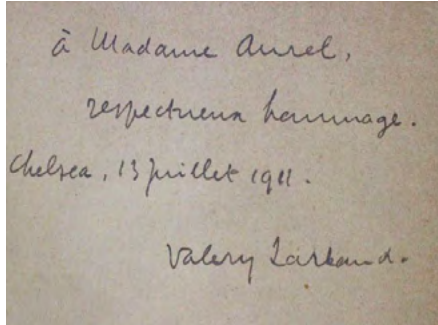 à Madame Aurel,
respectueux hommage.
Chelsea, 13 juillet 1911.
Valery Larbaud.